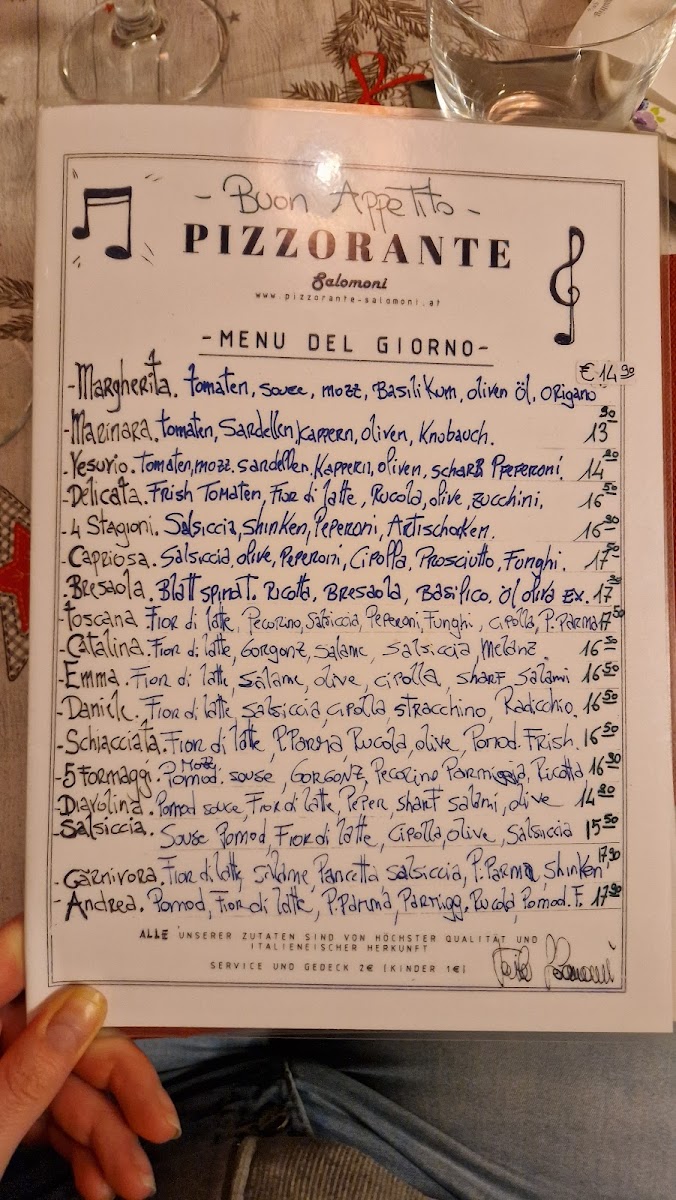 - Buon Appetito -
PIZZORANTE
Salomoni
www.pizzorante-salomoni.at
-MENU DEL GIORNO-
-Margherita. tomaten, souce, mozz, Basilikum, oliven öl, origano € 14 90
-Marinara. tomaten, Sardellen, Kappern, oliven, Knobauch. 13 90
-Vesuvio. tomaten, mozz. sardellen. Kappern, oliven, scharf Pfeperoni. 14
-Delicata. Frish Tomaten, Fior di latte, Rucola, olive, zucchini, 16 50
-4 Stagioni. Salsiccia, shinken, Peperoni, Artischoken. 16
-Capriosa. Salsiccia, olive, Peperoni, Cipolla, Prosciutto, Funghi. 17 50
-Bresaola. Blatt spinat. Ricotta, Bresaola, Basilico. öl oliva Ex. 17
-toscana Fior di latte, Pecorino, Salsiccia, Peperoni, Funghi, cipolla, P.Parma 17 50
-Catalina. Fior di latte, Gorgonz, salame, salsiccia, Melanz. 16 50
-Emma. Fior di latte, salame, olive, cipolla, sharf salami 16 50
-Daniele. Fior di latte, salsiccia, cipolla, stracchino, Radicchio. 16 50
-Schiacciata. Fior di latte, P.Parma, Rucola, olive, Pomod. Frish. 16 50
-5 Formaggi. Pomod. souse, Mozz, Gorgonz, Pecorino Parmiggia, Ricotta 16
-Diavolina. Pomod souce, Fior di latte, Peper, sharf salami, olive 14
-Salsiccia. Souse Pomod, Fior di latte, Cipolla, olive, Salsiccia 15 50
-Carnivora. Fior di latte, Salame, Pancetta salsiccia, P.Parma, Shinken 17,90
-Andrea. Pomod, Fior di latte, P.Parma, Parmigg. Rucola, Pomod. F. 17
ALLE UNSERER ZUTATEN SIND VON HÖCHSTER QUALITÄT UND
ITALIENEISCHER HERKUNFT
SERVICE UND GEDECK 2€ (KINDER 1€)